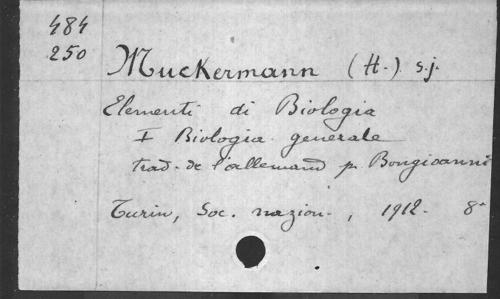 484
250
Muckermann (H.) s.j.
Elementi di Biologia
I Biologia generale
trad. de l'allemand p. Bongioanni
Turin, Soc. nazion., 1912. 8°